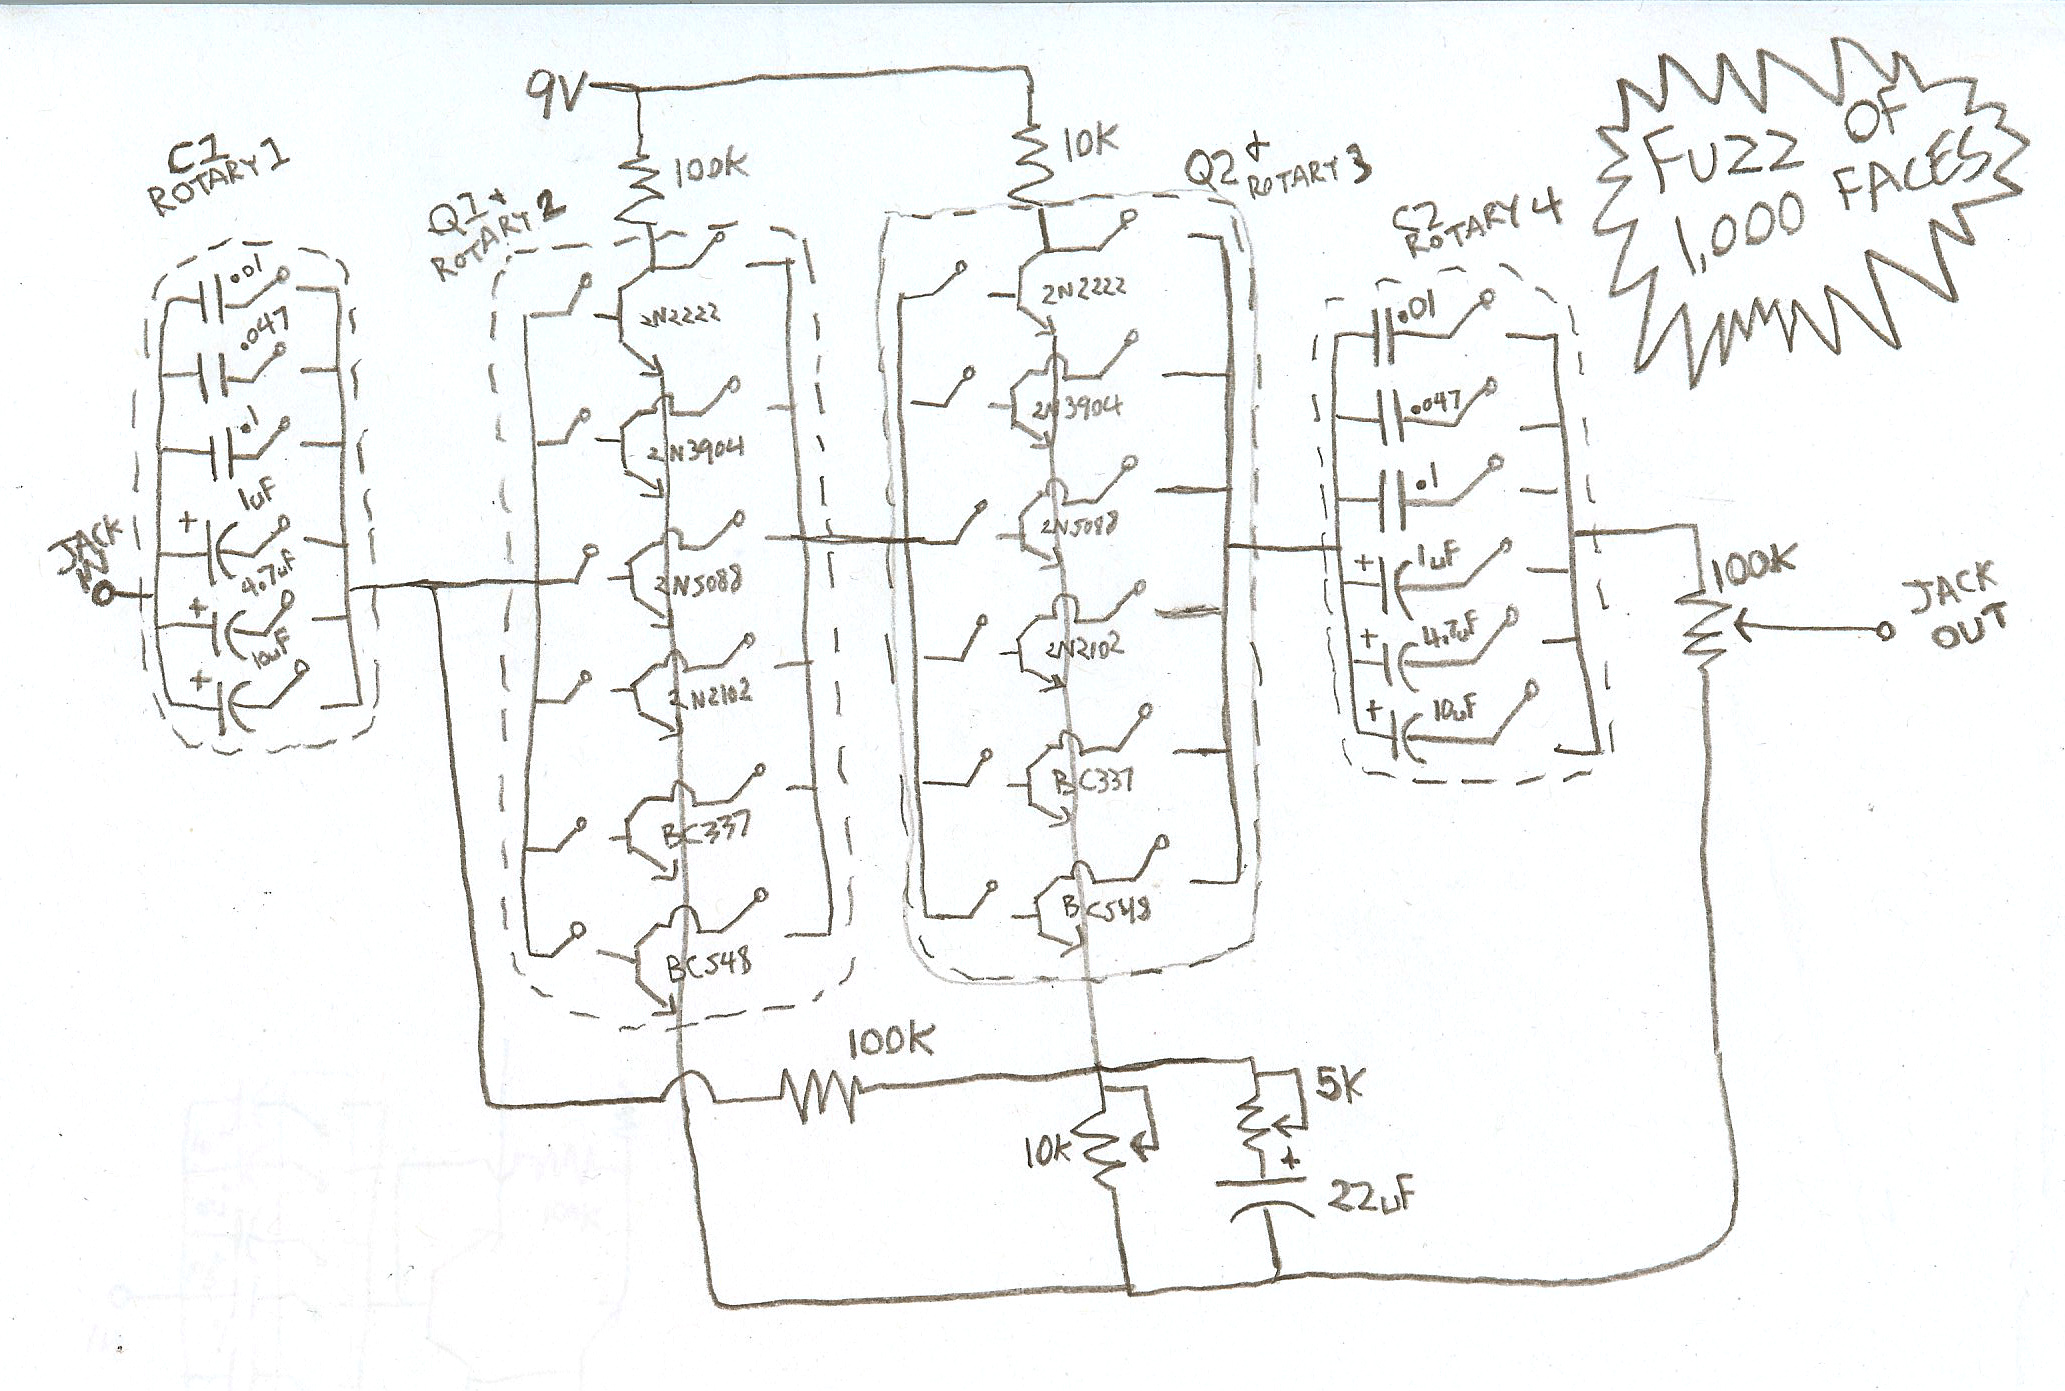 FUZZ OF
1,000 FACES
9V
100K
10K
C1
ROTARY 1
Q1 +
ROTARY 2
Q2 +
ROTARY 3
C2
ROTARY 4
JACK
IN
.01
.047
.1
1uF
+
4.7uF
+
10uF
+
2N2222
2N3904
2N5088
2N2102
BC337
BC548
2N2222
2N3904
2N5088
2N2102
BC337
BC548
.01
.047
.1
1uF
+
4.7uF
+
10uF
+
100K
JACK
OUT
100K
10K
5K
+
22uF